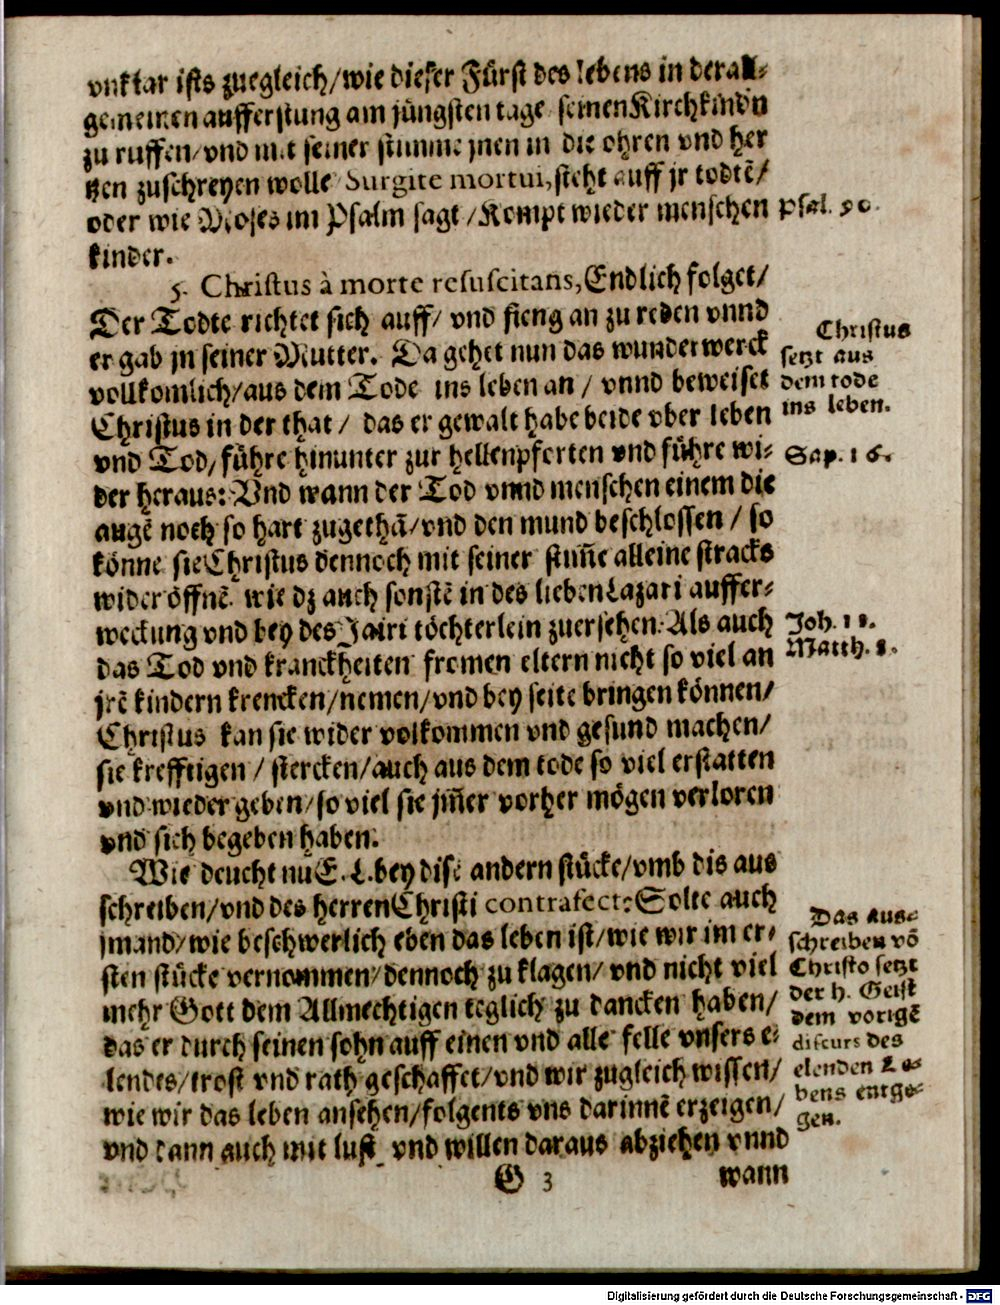 vnklar ists zuegleich/wie dieser Fürst des lebens in der all-
gemeinen aufferstung am jüngsten tage seinen Kirchkindn
zu ruffen/vnd mit seiner stimme jnen in die ohren vnd her
tzen zuschreyen wolle Surgite mortui, steht auff jr todtē/
oder wie Moses im Psalm sagt/Kompt wieder menschen
Psal. 90.
kinder.
5. Christus à morte resuscitans, Endlich folget/
Der Todte richtet sich auff/ vnd fieng an zu reden vnnd
er gab jn seiner Mutter. Da gehet nun das wunderwerck
vollkomlich/aus dem Tode ins leben an/ vnnd beweiset
Christus in der that/ das er gewalt habe beide vber leben
Christus
setzt aus
dem tode
ins leben.
vnd Tod/ führe hinunter zur hellenpforten vnd führe wi-
Sap. 16.
der heraus: Vnd wann der Tod vnnd menschen einem die
augē noch so hart zugethā/vnd den mund beschlossen/ so
könne sie Christus dennoch mit seiner stim̄e alleine stracks
wider öffnē. wie dz auch sonstē in des lieben Lazari auffer-
weckung vnd bey des Jairi töchterlein zuersehen. Als auch
Joh. 11.
Matth. 8.
das Tod vnd kranckheiten fromen eltern nicht so viel an
jrē kindern krencken/nemen/vnd bey seite bringen können/
Christus kan sie wider volkommen vnd gesund machen/
sie krefftigen/ stercken/auch aus dem tode so viel erstatten
vnd wieder geben/so viel sie jm̄er vorher mögen verloren
vnd sich begeben haben.
Wie deucht nu E. L. bey dise andern stücke/vmb dis aus
schreiben/vnd des herren Christi contrafect: Solte auch
jmand/wie beschwerlich eben das leben ist/wie wir im er-
sten stücke vernommen/dennoch zu klagen/ vnd nicht viel
mehr Gott dem Allmechtigen teglich zu dancken haben/
das er durch seinen sohn auff einen vnd alle felle vnsers e-
lendes/trost vnd rath geschaffet/vnd wir zugleich wissen/
wie wir das leben ansehen/folgents vns darinnē erzeigen/
vnd dann auch mit lust vnd willen daraus abziehen vnnd
Das aus-
schreiben vō
Christo setzt
der h. Geist
dem vorigē
discurs des
elenden Le-
bens entge-
gen.
G 3
wann
Digitalisierung gefördert durch die Deutsche Forschungsgemeinschaft - DFG